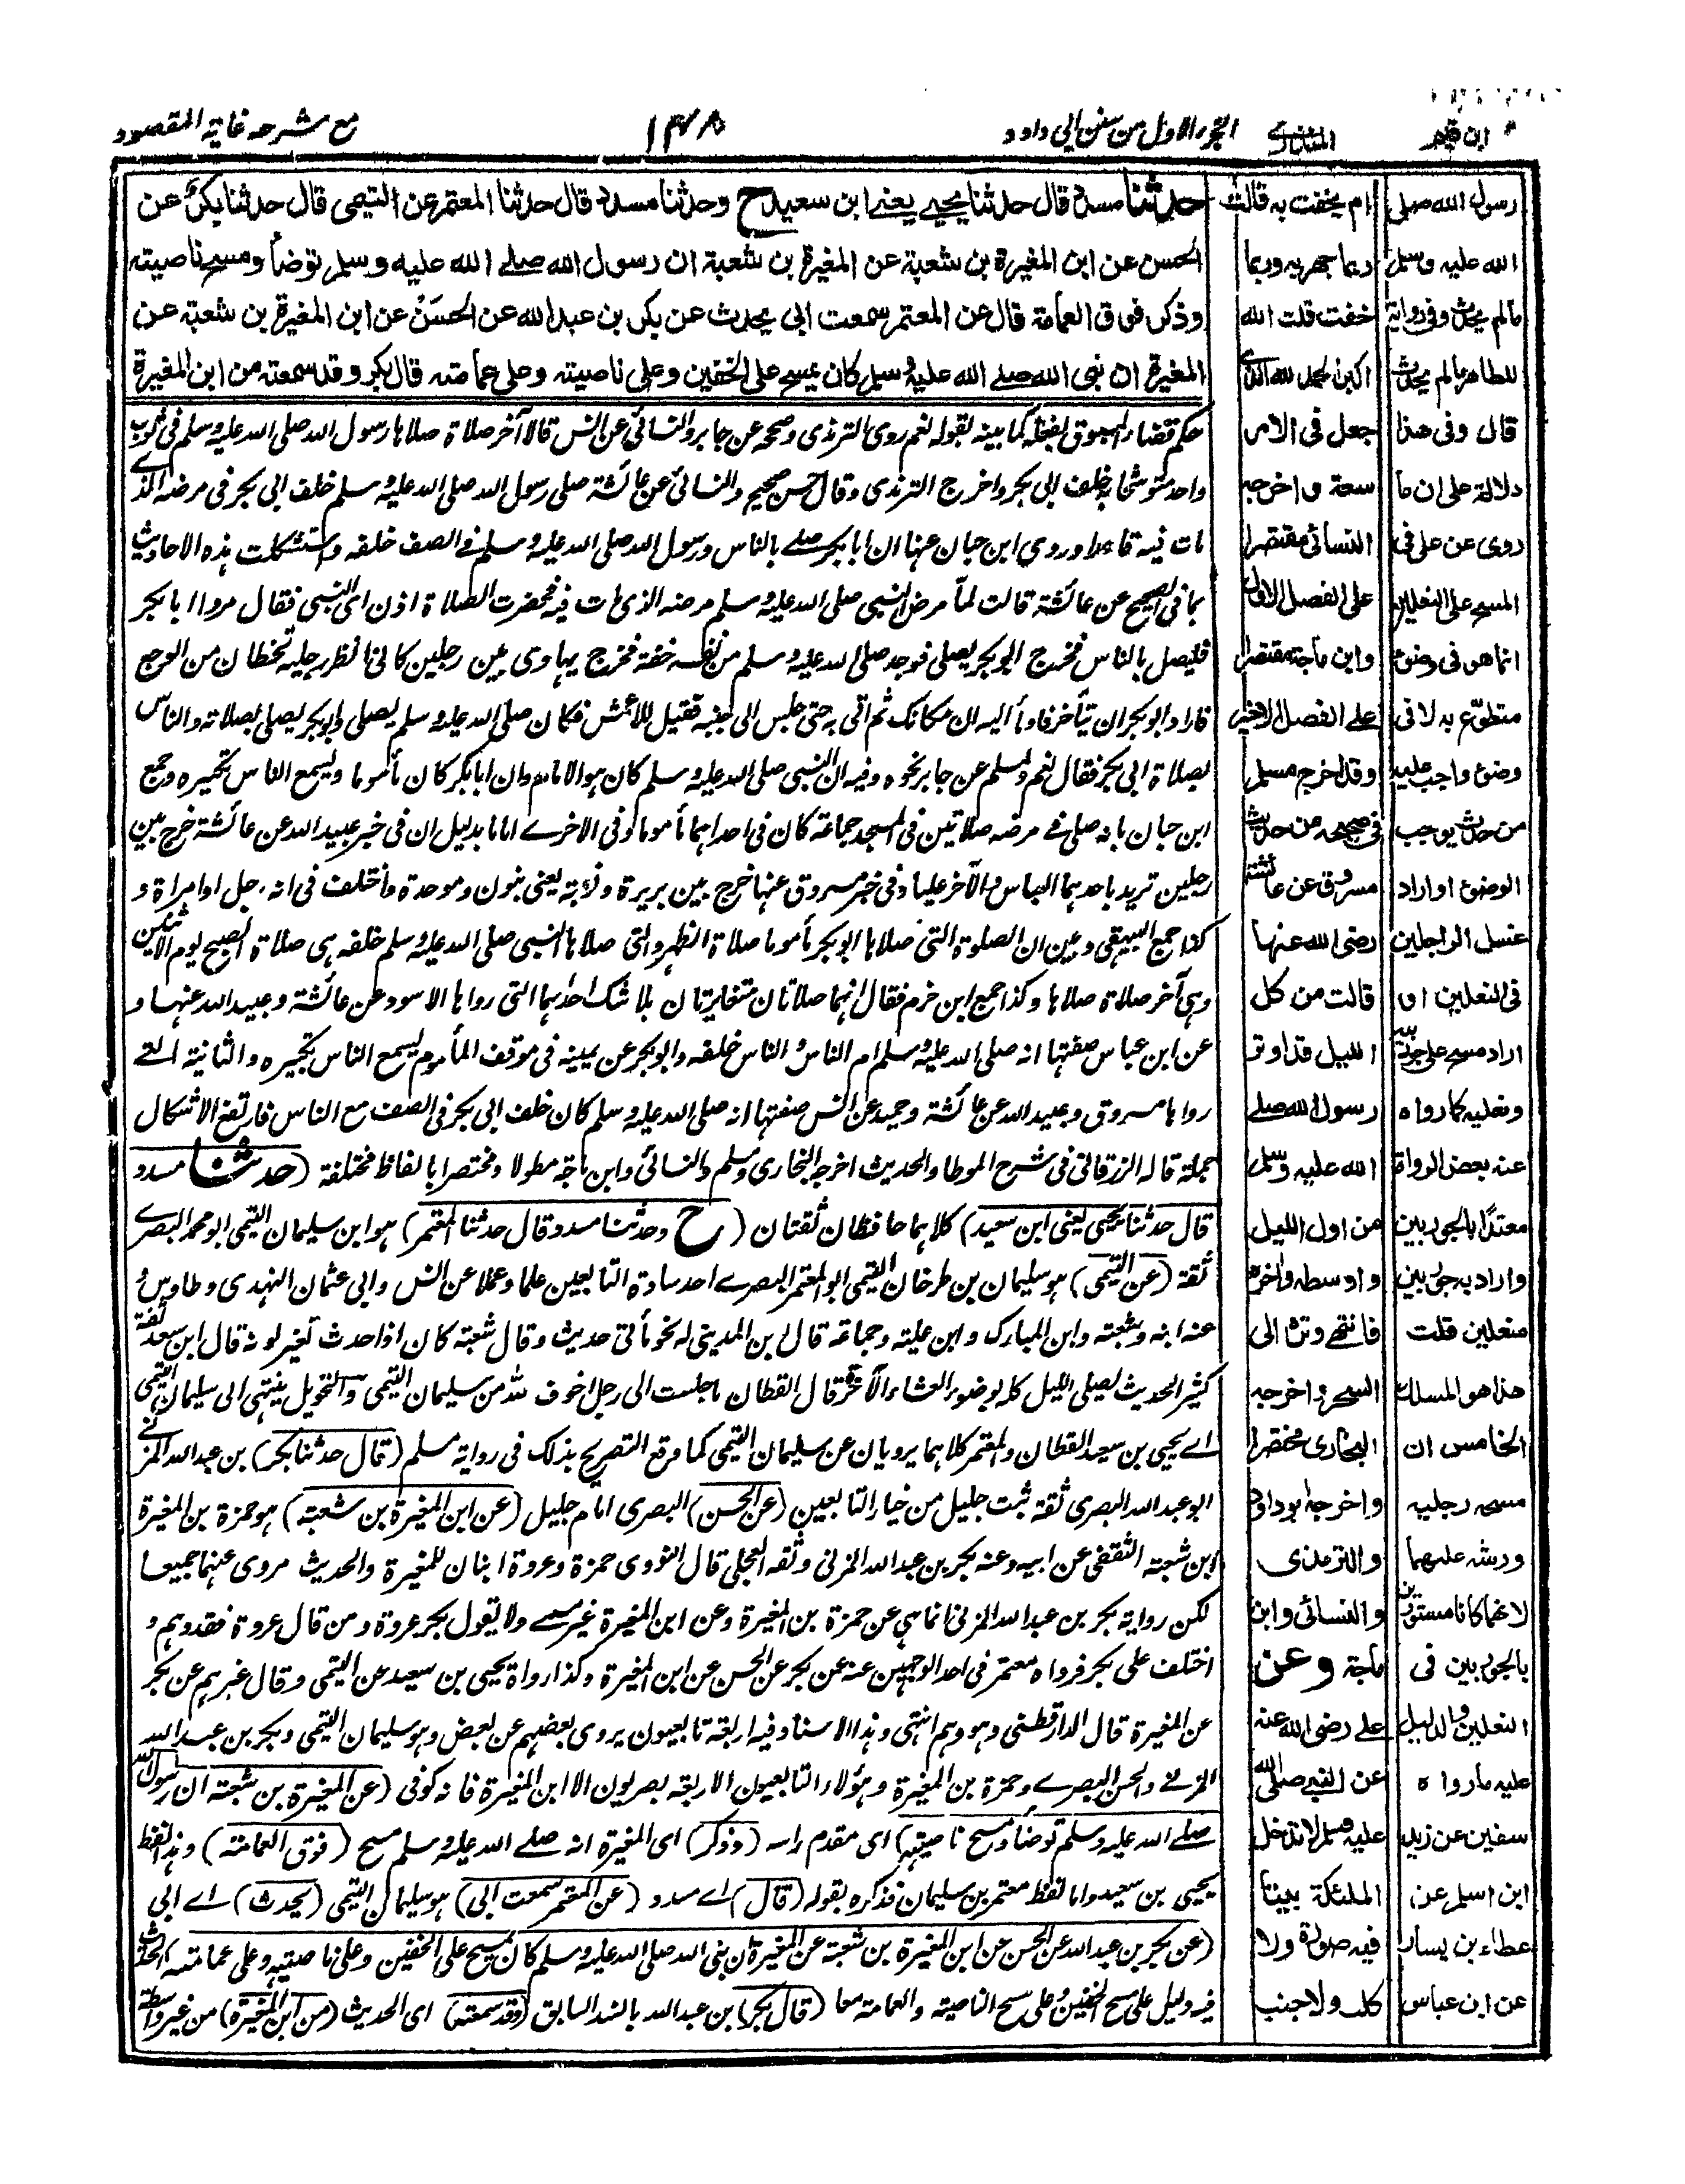 ابن قيم
المنذري
الجزء الاول من سنن ابى داود
١٤٨
مع شرحه غاية المقصود
حدثنا مسدد قال حدثنا يحيى يعنى ابن سعيد ح وحدثنا مسدد قال حدثنا المعتمر عن التيمى قال حدثنا بكر عن
الحسن عن ابن المغيرة بن شعبة عن المغيرة بن شعبة ان رسول الله صلى الله عليه وسلم توضأ ومسح ناصيته
وذكر فوق العمامة قال عن المعتمر سمعت ابى يحدث عن بكر بن عبد الله عن الحسن عن ابن المغيرة بن شعبة عن
المغيرة ان نبى الله صلى الله عليه وسلم كان يمسح على الخفين وعلى ناصيته وعلى عمامته قال بكر وقد سمعته من ابن المغيرة
حكم قضاء المسبوق بفعله كما بينه بقوله نعم روى الترمذى وصححه عن جابر والنسائى عن انس قالا آخر صلاة صلاها رسول الله صلى الله عليه وسلم فى ثوب
واحد متوشحا به خلف ابى بكر واخرج الترمذى وقال حسن صحيح والنسائى عن عائشة صلى رسول الله صلى الله عليه وسلم خلف ابى بكر فى مرضه الذى
مات فيه قاعدا وروى ابن حبان عنها ان ابا بكر صلى بالناس ورسول الله صلى الله عليه وسلم فى الصف خلفه واستشكلت هذه الاحاديث
بما فى الصحيح عن عائشة قالت لما مرض النبى صلى الله عليه وسلم مرضه الذى مات فيه فحضرت الصلاة اذن اى النبى فقال مروا ابا بكر
فليصل بالناس فخرج ابو بكر يصلى فوجد صلى الله عليه وسلم من نفسه خفة فخرج يهادى بين رجلين كانى انظر رجليه تخطان من الوجع
فاراد ابو بكر ان يتأخر فاومأ اليه ان مكانك ثم اتى به حتى جلس الى جنبه فقيل للاعمش فكان صلى الله عليه وسلم يصلى وابو بكر يصلى بصلاته والناس
بصلاة ابى بكر فقال نعم ولمسلم عن جابر نحوه وفيه ان النبى صلى الله عليه وسلم كان هو الامام وان ابا بكر كان مأموما وليسمع الناس تكبيره وجمع
ابن حبان بانه صلى فى مرضه صلاتين فى المسجد جماعة كان فى احداهما مأموما وفى الاخرى اماما بدليل ان فى خبر عبيد الله عن عائشة خرج بين
رجلين تريد باحدهما العباس والآخر عليا وفى خبر مسروق عنها خرج بين بريرة ونوبة يعنى بنون وموحدة واختلف فى انه رجل او امراة و
كذا جمع البيهقى وبين ان الصلوة التى صلاها ابو بكر مأموما صلاة الظهر والتى صلاها النبى صلى الله عليه وسلم خلفه هى صلاة الصبح يوم الاثنين
وهى آخر صلاة صلاها وكذا جمع ابن حزم فقال انهما صلاتان متغايرتان بلا شك احداهما التى رواها الاسود عن عائشة وعبيد الله عنها و
عن ابن عباس صفتها انه صلى الله عليه وسلم ام الناس والناس خلفه وابو بكر عن يمينه فى موقف المأموم يسمع الناس تكبيره والثانية التى
رواها مسروق وعبيد الله عن عائشة وحميد عن انس صفتها انه صلى الله عليه وسلم كان خلف ابى بكر فى الصف مع الناس فارتفع الاشكال
جملة قاله الزرقانى فى شرح الموطا والحديث اخرجه البخارى ومسلم والنسائى وابن ماجة مطولا ومختصرا بالفاظ مختلفة (حدثنا مسدد
قال حدثنا يحيى يعنى ابن سعيد) كلاهما حافظان ثقتان (ح وحدثنا مسدد قال حدثنا المعتمر) هو ابن سليمان التيمى ابو محمد البصرى
ثقة (عن التيمى) هو سليمان بن طرخان التيمى ابو المعتمر البصرى احد سادة التابعين علما وعملا عن انس وابى عثمان النهدى وطاوس و
عنه ابنه وشعبة وابن المبارك وابن علية وجماعة قال ابن المدينى له نحو مأتى حديث وقال شعبة كان اذا حدث تغير لونه قال ابن سعد ثقة
كثير الحديث يصلى الليل كله بوضوء العشاء الآخرة قال القطان ما جلست الى رجل اخوف لله من سليمان التيمى والتحويل ينتهى الى سليمان التيمى
اى يحيى بن سعيد القطان والمعتمر كلاهما يرويان عن سليمان التيمى كما وقع التصريح بذلك فى رواية مسلم (قال حدثنا بكر) بن عبد الله المزنى
ابو عبد الله البصرى ثقة ثبت جليل من خيار التابعين (عن الحسن) البصرى امام جليل (عن ابن المغيرة بن شعبة) هو حمزة بن المغيرة
ابن شعبة الثقفى عن ابيه وعنه بكر بن عبد الله المزنى وثقه العجلى قال النووى حمزة وعروة ابنان للمغيرة والحديث مروى عنهما جميعا
لكن رواية بكر بن عبد الله المزنى انما هى عن حمزة بن المغيرة وعن ابن المغيرة غير مسمى ولا يقول بكر عروة ومن قال عروة فقد وهم و
اختلف على بكر فرواه معتمر فى احد الوجهين عنه عن بكر عن الحسن عن ابن المغيرة وكذا رواه يحيى بن سعيد عن التيمى وقال غيرهم عن بكر
عن المغيرة قال الدارقطنى وهو وهم انتهى وهذا الاسناد فيه اربعة تابعيون يروى بعضهم عن بعض وهو سليمان التيمى وبكر بن عبد الله
المزنى والحسن البصرى وحمزة بن المغيرة وهؤلاء التابعيون الاربعة بصريون الا ابن المغيرة فانه كوفى (عن المغيرة بن شعبة ان رسول الله
صلى الله عليه وسلم توضأ ومسح ناصيته) اى مقدم راسه (وذكر) اى المغيرة انه صلى الله عليه وسلم مسح (فوق العمامة) وهذا لفظ
يحيى بن سعيد واما لفظ معتمر بن سليمان فذكره بقوله (قال) اى مسدد (عن المعتمر سمعت ابى) هو سليمان التيمى (يحدث) اى ابى
(عن بكر بن عبد الله عن الحسن عن ابن المغيرة بن شعبة عن المغيرة ان نبى الله صلى الله عليه وسلم كان يمسح على الخفين وعلى ناصيته وعلى عمامته) الحديث
فيه دليل على مسح الخفين وعلى مسح الناصية والعمامة معا (قال بكر) بن عبد الله بالسند السابق (وقد سمعته) اى الحديث (من ابن المغيرة) من غير واسطة
ام يخفت به قالت
ربما جهر به وربما
خفت قلت الله
اكبر الحمد لله الذى
جعل فى الامر
سعة واخرجه
النسائى مقتصرا
على الفصل الاول
وابن ماجة مقتصرا
على الفصل الاخير
وقد اخرج مسلم
فى صحيحه من حديث
مسروق عن عائشة
رضى الله عنها
قالت من كل
الليل قد اوتر
رسول الله صلى
الله عليه وسلم
من اول الليل
واوسطه واخره
فانتهى وتره الى
السحر واخرجه
البخارى مختصرا
واخرجه ابو داود
والترمذى
والنسائى وابن
ماجة وعن
على رضى الله عنه
عن النبى صلى الله
عليه وسلم لا تدخل
الملئكة بيتا
فيه صورة ولا
كلب ولا جنب
رسول الله صلى
الله عليه وسلم
مالم يحدث وفى رواية
للطاهر مالم يحدث
قال وفى هذا
دلالة على ان ما
روى عن على فى
المسح على النعلين
انما هو فى وضوء
متطوع به لا فى
وضوء واجب عليه
من حدث يوجب
الوضوء او اراد
غسل الرجلين
فى النعلين او
اراد مسح على جوربيه
ونعليه كما رواه
عنه بعض الرواة
معتدا بالجوربين
واراد به جوربين
منعلين قلت
هذا هو المسلك
الخامس ان
مسحه رجليه
ورشه عليهما
لانهما كانا مستورين
بالجوربين فى
النعلين والدليل
عليه ما رواه
سفين عن زيد
ابن اسلم عن
عطاء بن يسار
عن ابن عباس